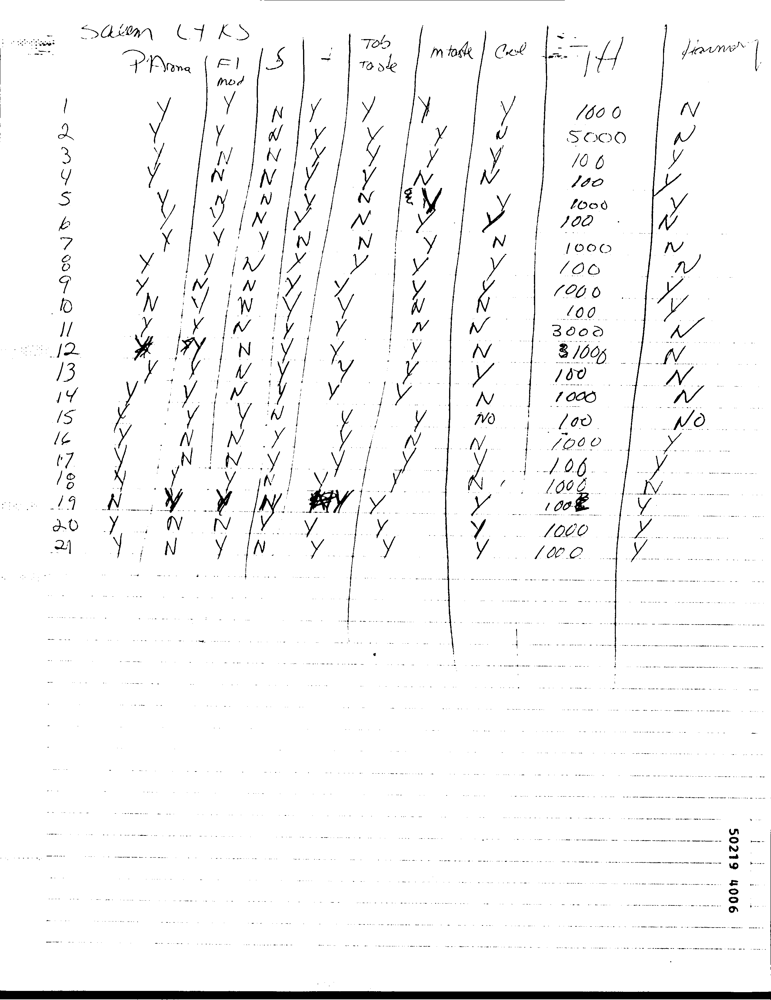 Salem LTKS
P'Aroma F1 mod S I Tob Taste m taste Cool IH Harmony
1 Y Y N Y Y Y Y 1000 N
2 Y Y N Y Y Y N 5000 N
3 Y N N Y Y Y Y 100 Y
4 Y N N Y Y N N 100 Y
5 Y N N Y N Y Y 1000 Y
6 Y Y N Y N Y Y 100 N
7 Y Y Y N N Y N 1000 N
8 Y Y N Y Y Y Y 100 N
9 Y N N Y Y Y Y 1000 Y
10 N Y N Y Y N N 100 Y
11 Y Y N Y Y N N 3000 N
12 Y N Y Y Y N 1000 N
13 Y Y N Y Y Y Y 100 N
14 Y Y N Y Y Y N 1000 N
15 Y Y Y N Y Y NO 100 NO
16 Y N N Y Y N N 1000 Y
17 Y N N Y Y Y Y 100 Y
18 Y Y Y N Y Y N 1000 N
19 N Y Y N Y Y Y 100 Y
20 Y N N Y Y Y Y 1000 Y
21 Y N Y N Y Y Y 1000 Y
50219 4006